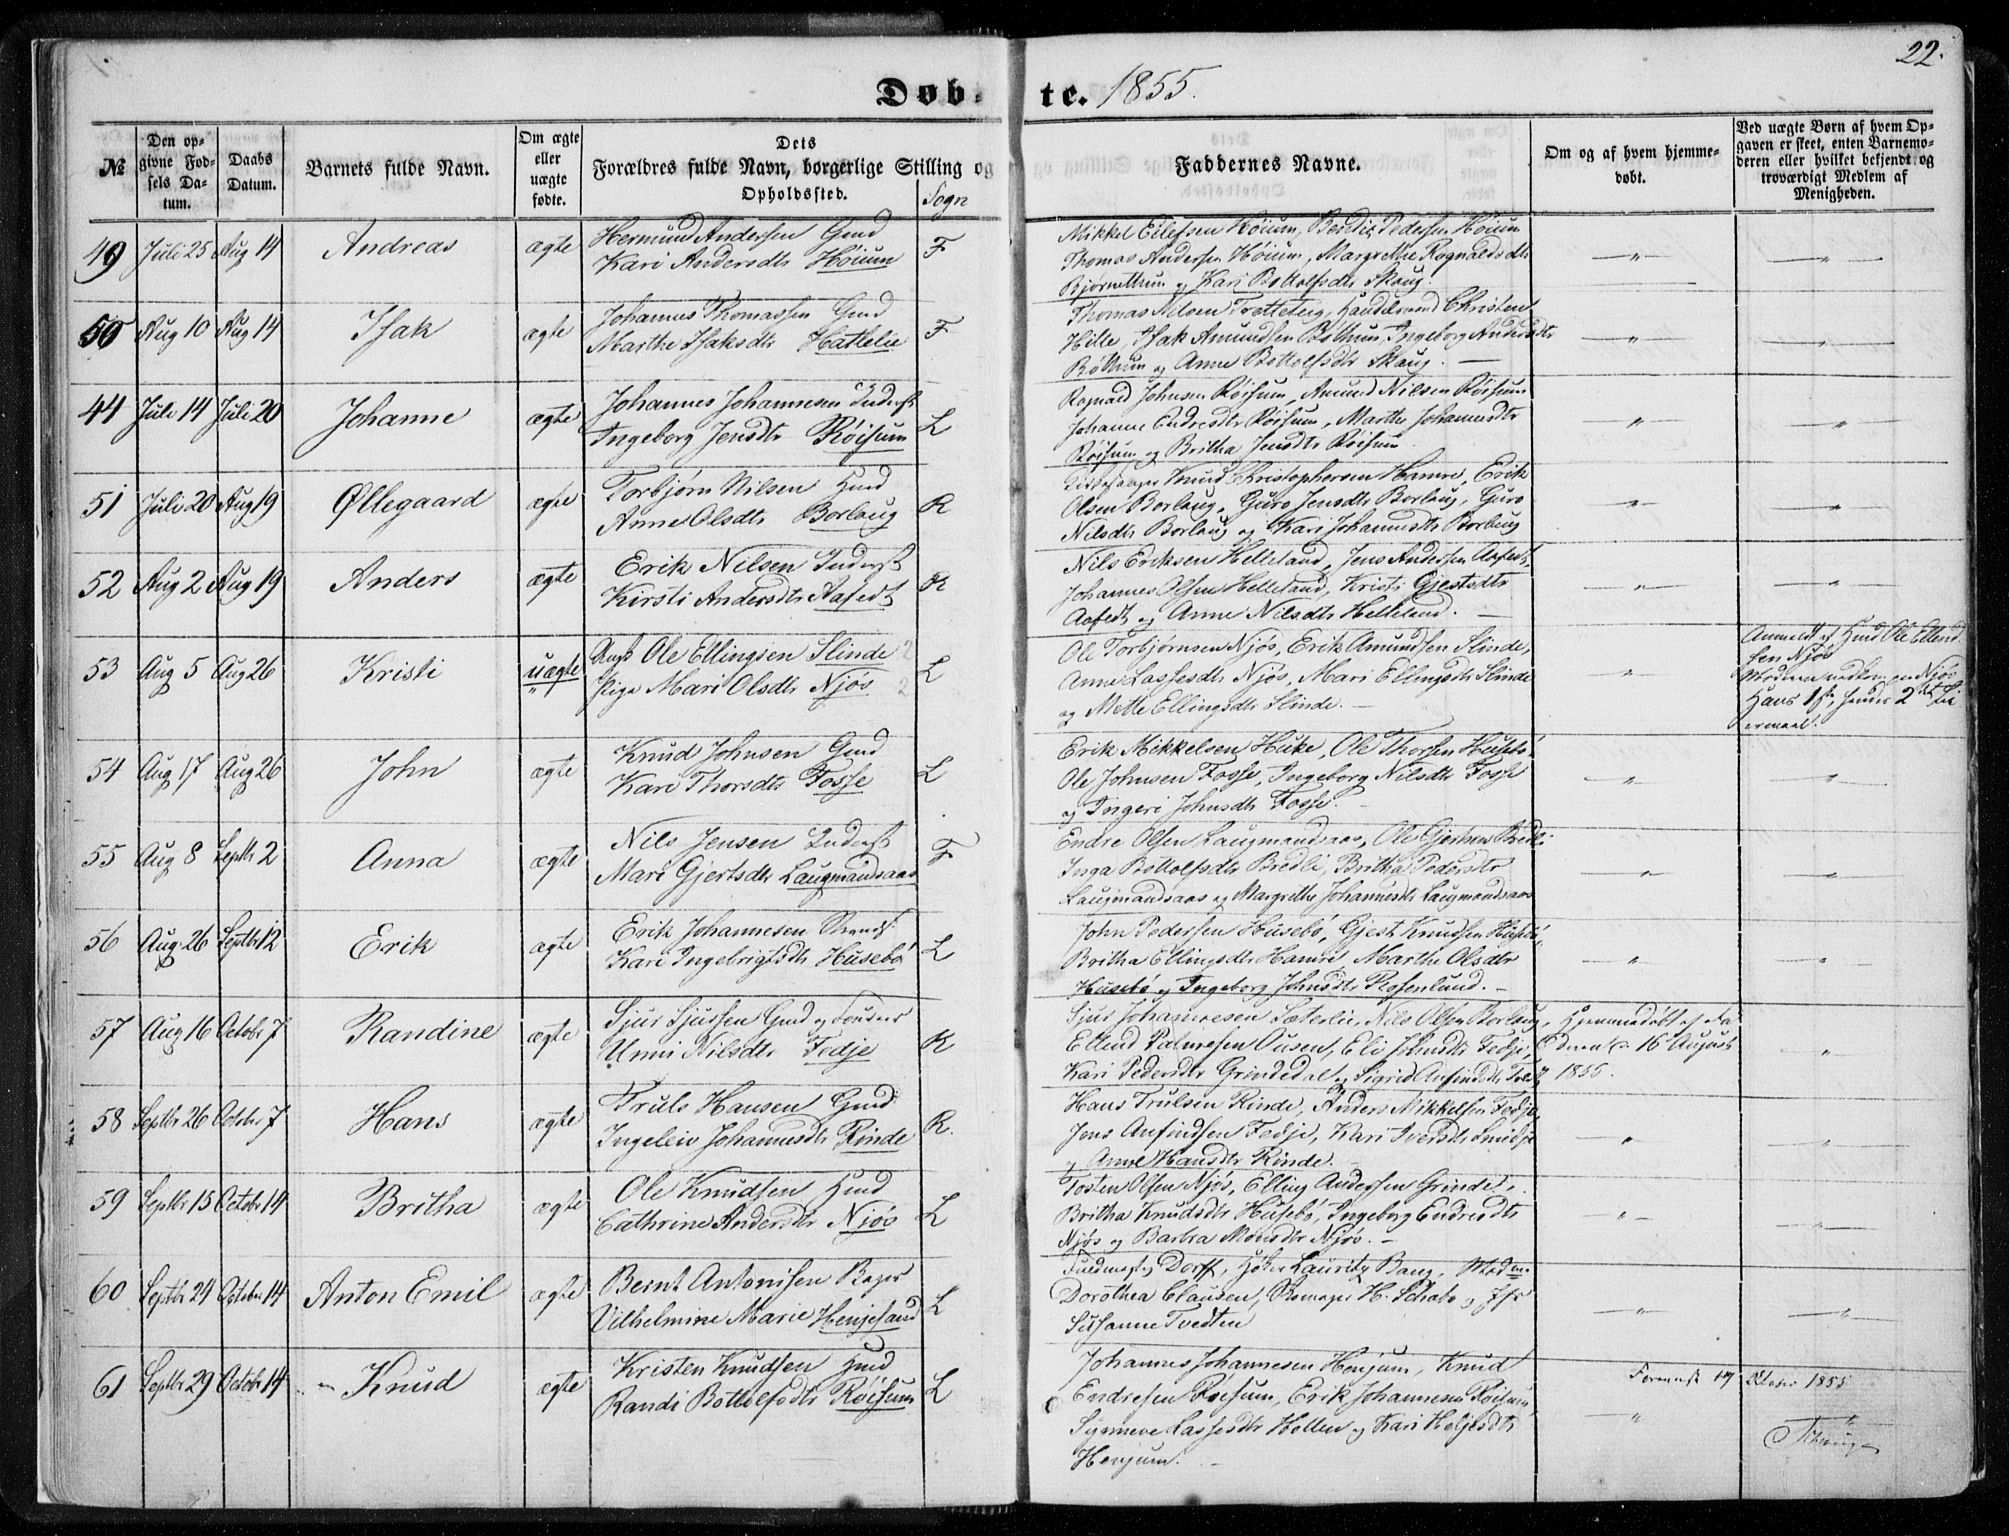 22.
Døbte. 1855.
№
Den opgivne Fødsels Datum.
Daabs Datum.
Barnets fulde Navn.
Om ægte eller uægte fødte.
Dets Forældres fulde Navn, borgerlige Stilling og Opholdssted.
Sogn
Faddernes Navne.
Om og af hvem hjemmedøbt.
Ved uægte Børn af hvem Opgaven er skeet, enten Barnemoderen eller hvilket bekjendt og troværdigt Medlem af Menigheden.
49 Juli 25 Aug 14 Andreas ægte
Hermund Andersen Gmd
Kari Andersdtr Høium F
Mikkel Eilefsen Høium, Bendix Pedersen Høium
Thomas Andersen Høium, Margrethe Rognaldsdtr
Bjørnethun og Kari Bottolfsdtr Skaug.
50 Aug 10 Aug 14 Isak ægte
Johannes Thomassen Gmd
Marthe Isaksdtr Hattelie F
Thomas Nilsen Tretteteig, Handelsmand Christen
Hille, Isak Amundsen Bøthun, Ingeborg Andersdtr
Bøthun og Anne Bottolfsdtr Skaug.
44 Juli 14 Juli 20 Johanne ægte
Johannes Johannesen Inderst
Ingeborg Jensdtr Røisum L
Rognald Johnsen Røisum, Amund Nilsen Røisum
Johanne Endresdtr Røisum, Marthe Johannesdtr
Røisum og Britha Jensdtr Røisum
51 Juli 20 Aug 19 Øllegaard ægte
Torbjørn Nilsen Hmd
Anne Olsdtr Borlaug R
Knud Christophersen Hamre, Erik
Olsen Borlaug, Guro Jensdtr Borlaug, Guro
Nilsdtr Borlaug og Kari Johannesdtr Borlaug
52 Aug 2 Aug 19 Anders ægte
Erik Nilsen Inderst
Kirsti Andersdtr Aafedt R
Nils Eriksen Helleland, Jens Andersen Aafedt,
Johannes Olsen Helleland, Kristi Gjestsdtr
Aafedt og Anne Nilsdtr Helleland.
53 Aug 5 Aug 26 Kristi uægte
Ungk Ole Ellingsen Slinde 2
Pige Mari Olsdtr Njøs 2 L
Ole Torbjørnsen Njøs, Erik Amundsen Slinde,
Anne Lassesdtr Njøs, Mari Ellingsdtr Slinde
og Mette Ellingsdtr Slinde.
Anmeldt af Hmd Ole Ellend
sen Njøs
Hans 1ste, hendes 2det Lei
ermaal.
54 Aug 17 Aug 26 John ægte
Knud Johnsen Gmd
Kari Thorsdtr Fosse L
Erik Mikkelsen Huke, Ole Thorsen Husebø
Ole Johnsen Fosse, Ingeborg Nilsdtr Fosse
og Ingeri Johnsdtr Fosse.
55 Aug 8 Septbr 2 Anna ægte
Nils Jensen Inderst
Mari Gjertsdtr Laugmandsaas F
Endre Olsen Laugmandsaas, Ole Gjertsen Bredli
Inga Bottolfsdtr Bredli, Britha Pedersdtr
Laugmandsaas og Margrethe Johannesdtr Laugmandsaas
56 Aug 26 Septbr 12 Erik ægte
Erik Johannesen Strands.
Kari Ingebrigtsdtr Husebø L
John Pedersen Husebø, Gjest Knudsen Husebø,
Britha Ellingsdtr Hamre Marthe Olsdtr
Husebø og Ingeborg Johnsdtr Rosenlund.
57 Aug 16 Octobr 7 Randine ægte
Sjur Sjursen Gmd og
Unni Nilsdtr Fedje R
Sjur Johannesen Sæterlie, Nils Olsen Borlaug,
Ellend Palmesen Ousen, Eli Johnsdtr Fedje,
Kari Pedersdtr Grindedal og Sigrid Anfindsdtr
Hjemmedøbt af Fa
deren den 16 August
1855.
58 Septbr 26 Octobr 7 Hans ægte
Truls Hansen Gmd
Ingeleiv Johannesdtr Rinde R.
Hans Trulsen Rinde, Anders Mikkelsen Fedje,
Jens Anfindsen Fedje, Kari Iversdtr
og Anne Hansdtr Rinde.
59 Septbr 15 Octobr 14 Britha ægte
Ole Knudsen Hmd
Cathrine Andersdtr Njøs L
Tosten Olsen Njøs, Elling Andersen Grinde,
Britha Knudsdtr Husebø, Ingeborg Endresdtr
Njøs og Barbra Monsdtr Njøs.
60 Septbr 24 Octobr 14 Anton Emil ægte
Bernt Antonisen Bager
Vilhelmine Marie Henjesand L
Fuldmægtig Dorff, Laurits Bang, Madme
Dorothea Clausen, Skomager H. Schabo og Jfr
Susanne Tvedten
61 Septbr 29 Octobr 14 Knud ægte
Kristen Knudsen Hmd
Randi Bottolfsdtr Røisum L
Johannes Johannesen Henjum, Knud
Endresen Røisum, Erik Johannesen Røisum,
Synneve Lassesdtr Hollen og Kari Heljesdtr
Henjum.
October 1855